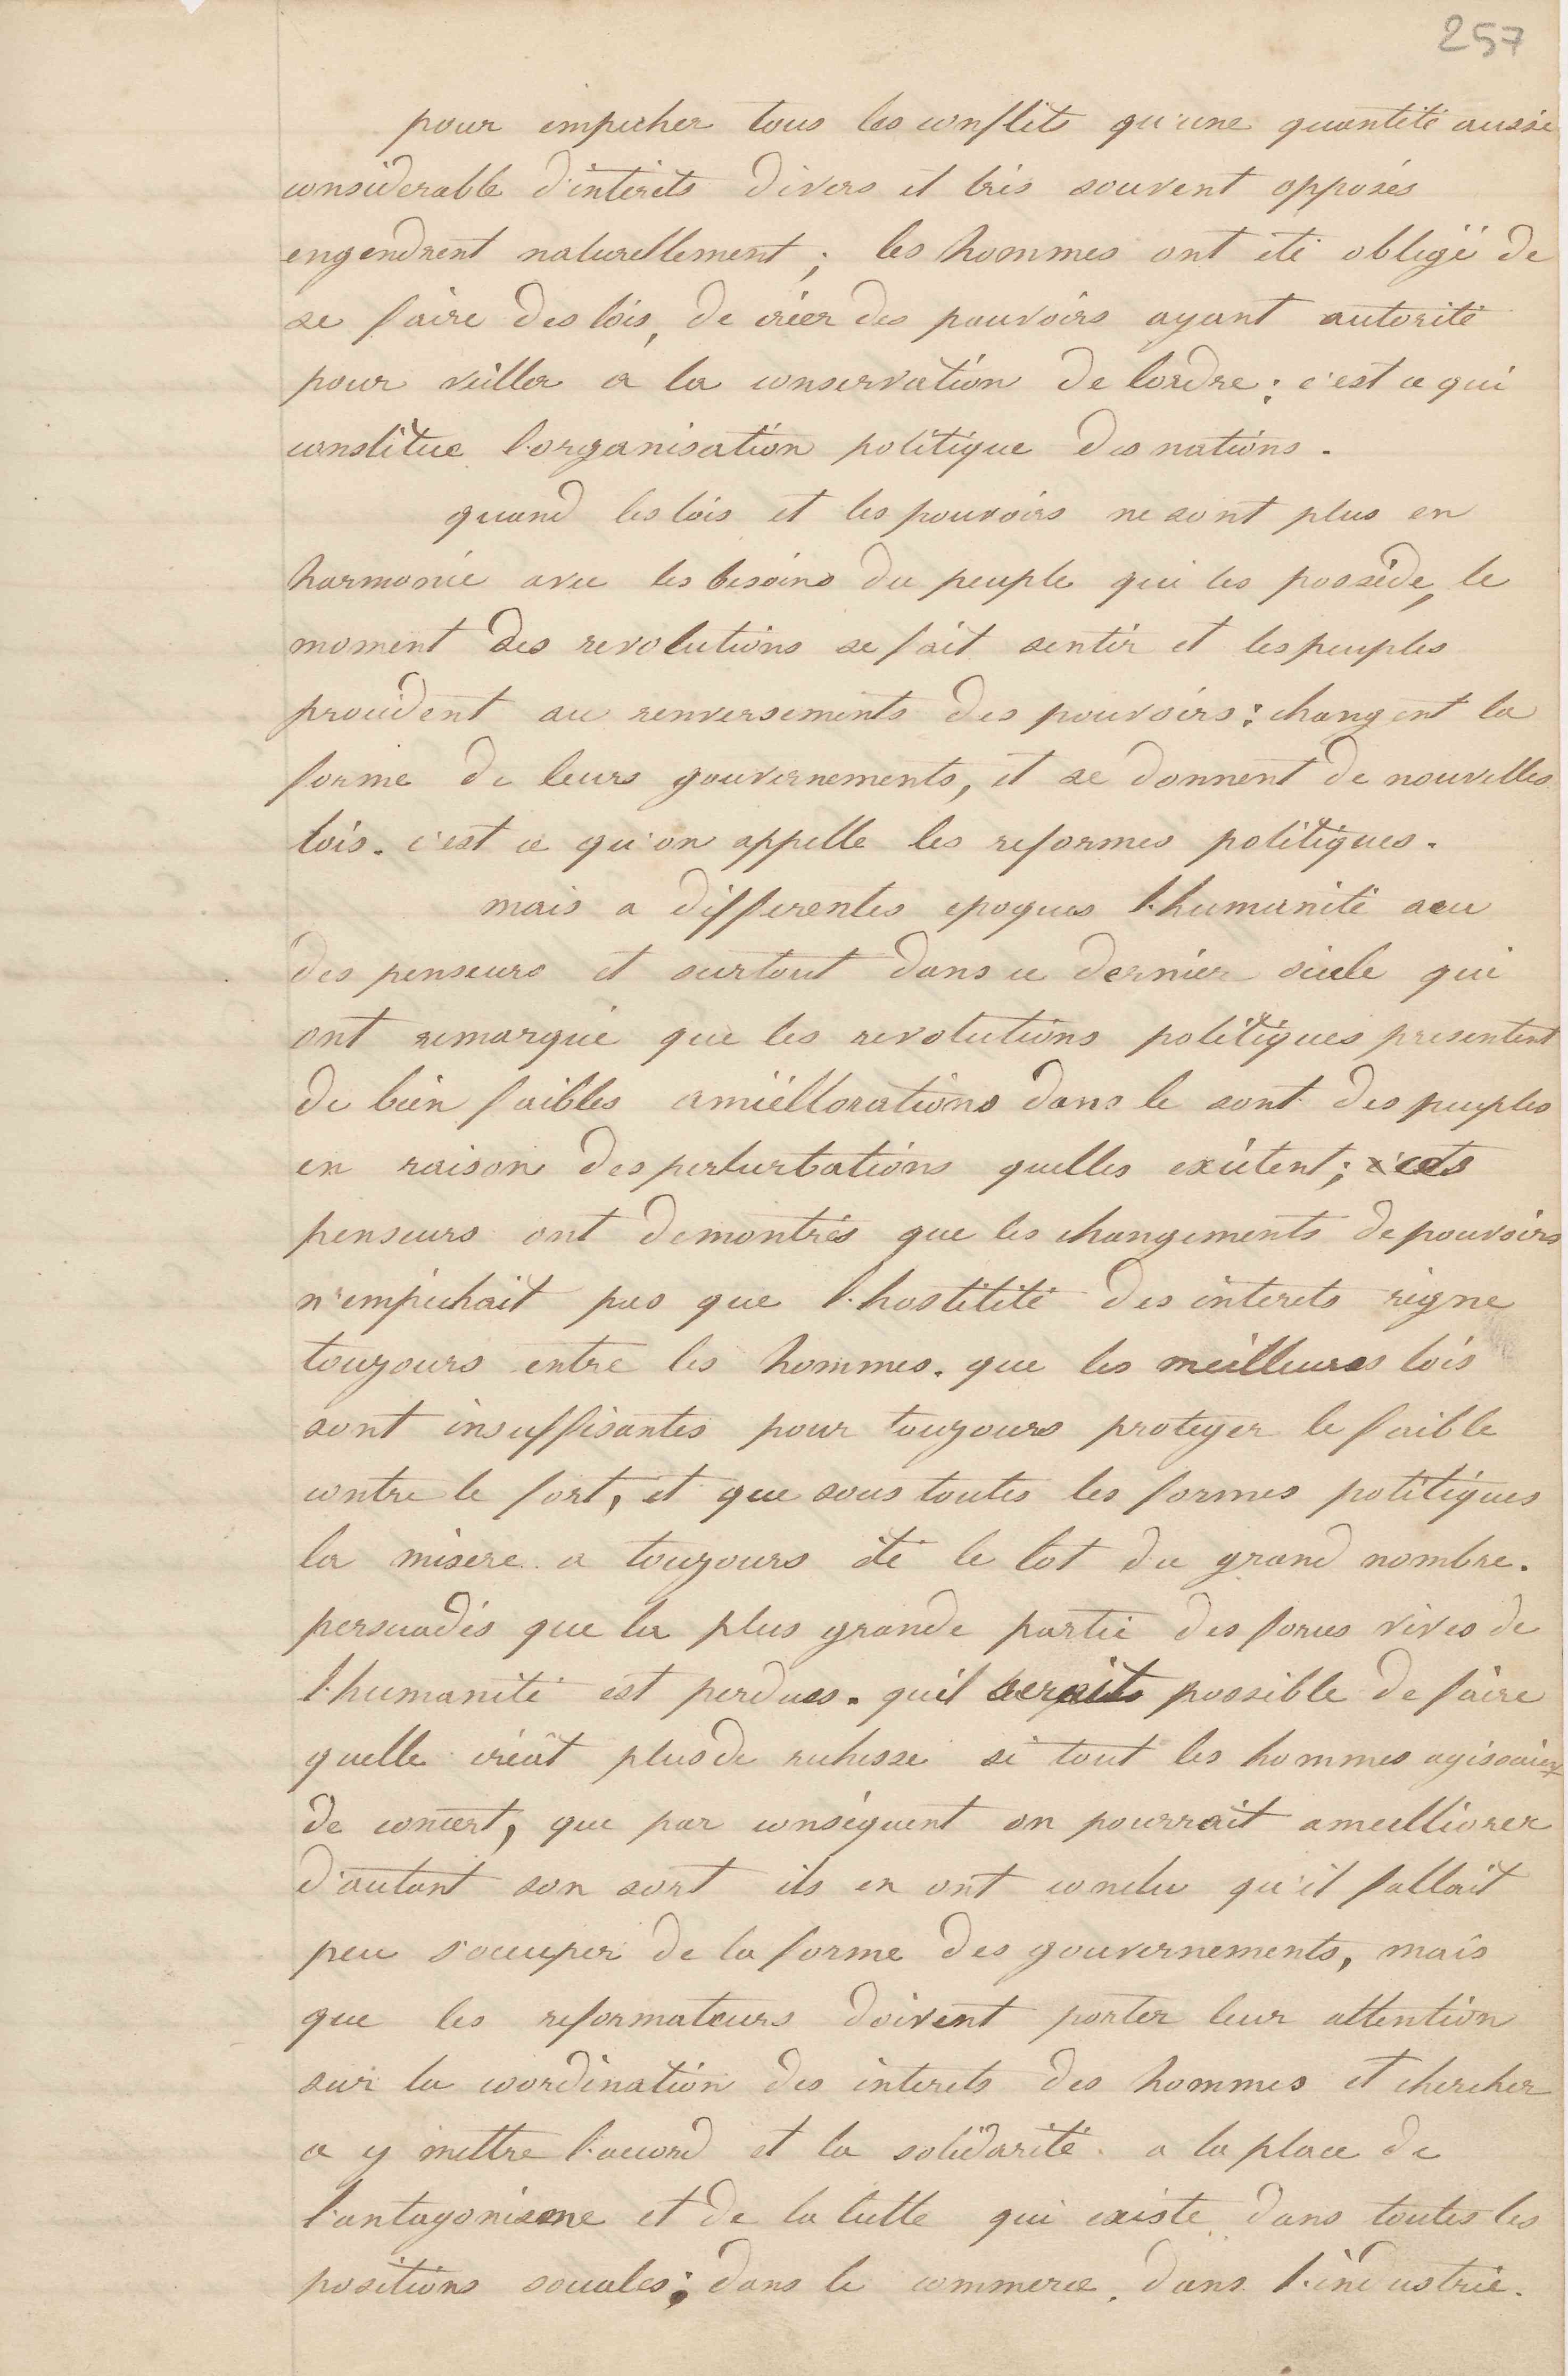 257
pour empecher tous les conflits qu'une quantité aussi
considerable d'intérêts divers et très souvent opposés
engendrent naturellement ; les hommes ont été obligé de
se faire des lois, de créer des pouvoirs ayant autorité
pour veiller a la conservation de lordre : c'est ce qui
constitue l'organisation politique des nations.
quand les lois et les pouvoirs ne sont plus en
harmonie avec les besoins du peuple qui les possède, le
moment des revolutions se fait sentir et les peuples
procèdent au renversements des pouvoirs : changent la
forme de leurs gouvernements, et se donnent de nouvelles
lois. c'est ce qu'on appelle les reformes politiques.
mais a differentes epoques l'humanité a eu
des penseurs et surtout dans ce dernier siècle qui
ont remarqué que les revolutions politiques presentent
de bien faibles amiéllorations dans le sont des peuples
en raison des perturbations quelles exitent ; ces
penseurs ont demontrés que les changements de pouvoirs
n'empéchait pas que l'hostilité des interets règne
toujours entre les hommes. que les meilleures lois
sont insuffisantes pour toujours proteger le faible
contre le fort, et que sous toutes les formes politiques
la misere a toujours été le lot du grand nombre.
persuadés que la plus grande partie des forces vives de
l'humanité est perdues. quil serait possible de faire
quelle créat plus de richesse si tout les hommes agissaient
de concert, que par conséquent on pourrait ameilliorer
d'autant son sort ils en ont conclu qu'il fallait
peu s'occuper de la forme des gouvernements, mais
que les reformateurs doivent porter leur attention
sur la coordination des interets des hommes et chercher
a y mettre l'accord et la solidarité a la place de
l'antagonisme et de la lutte qui existe dans toutes les
positions sociales ; dans le commerce, dans l'industrie.